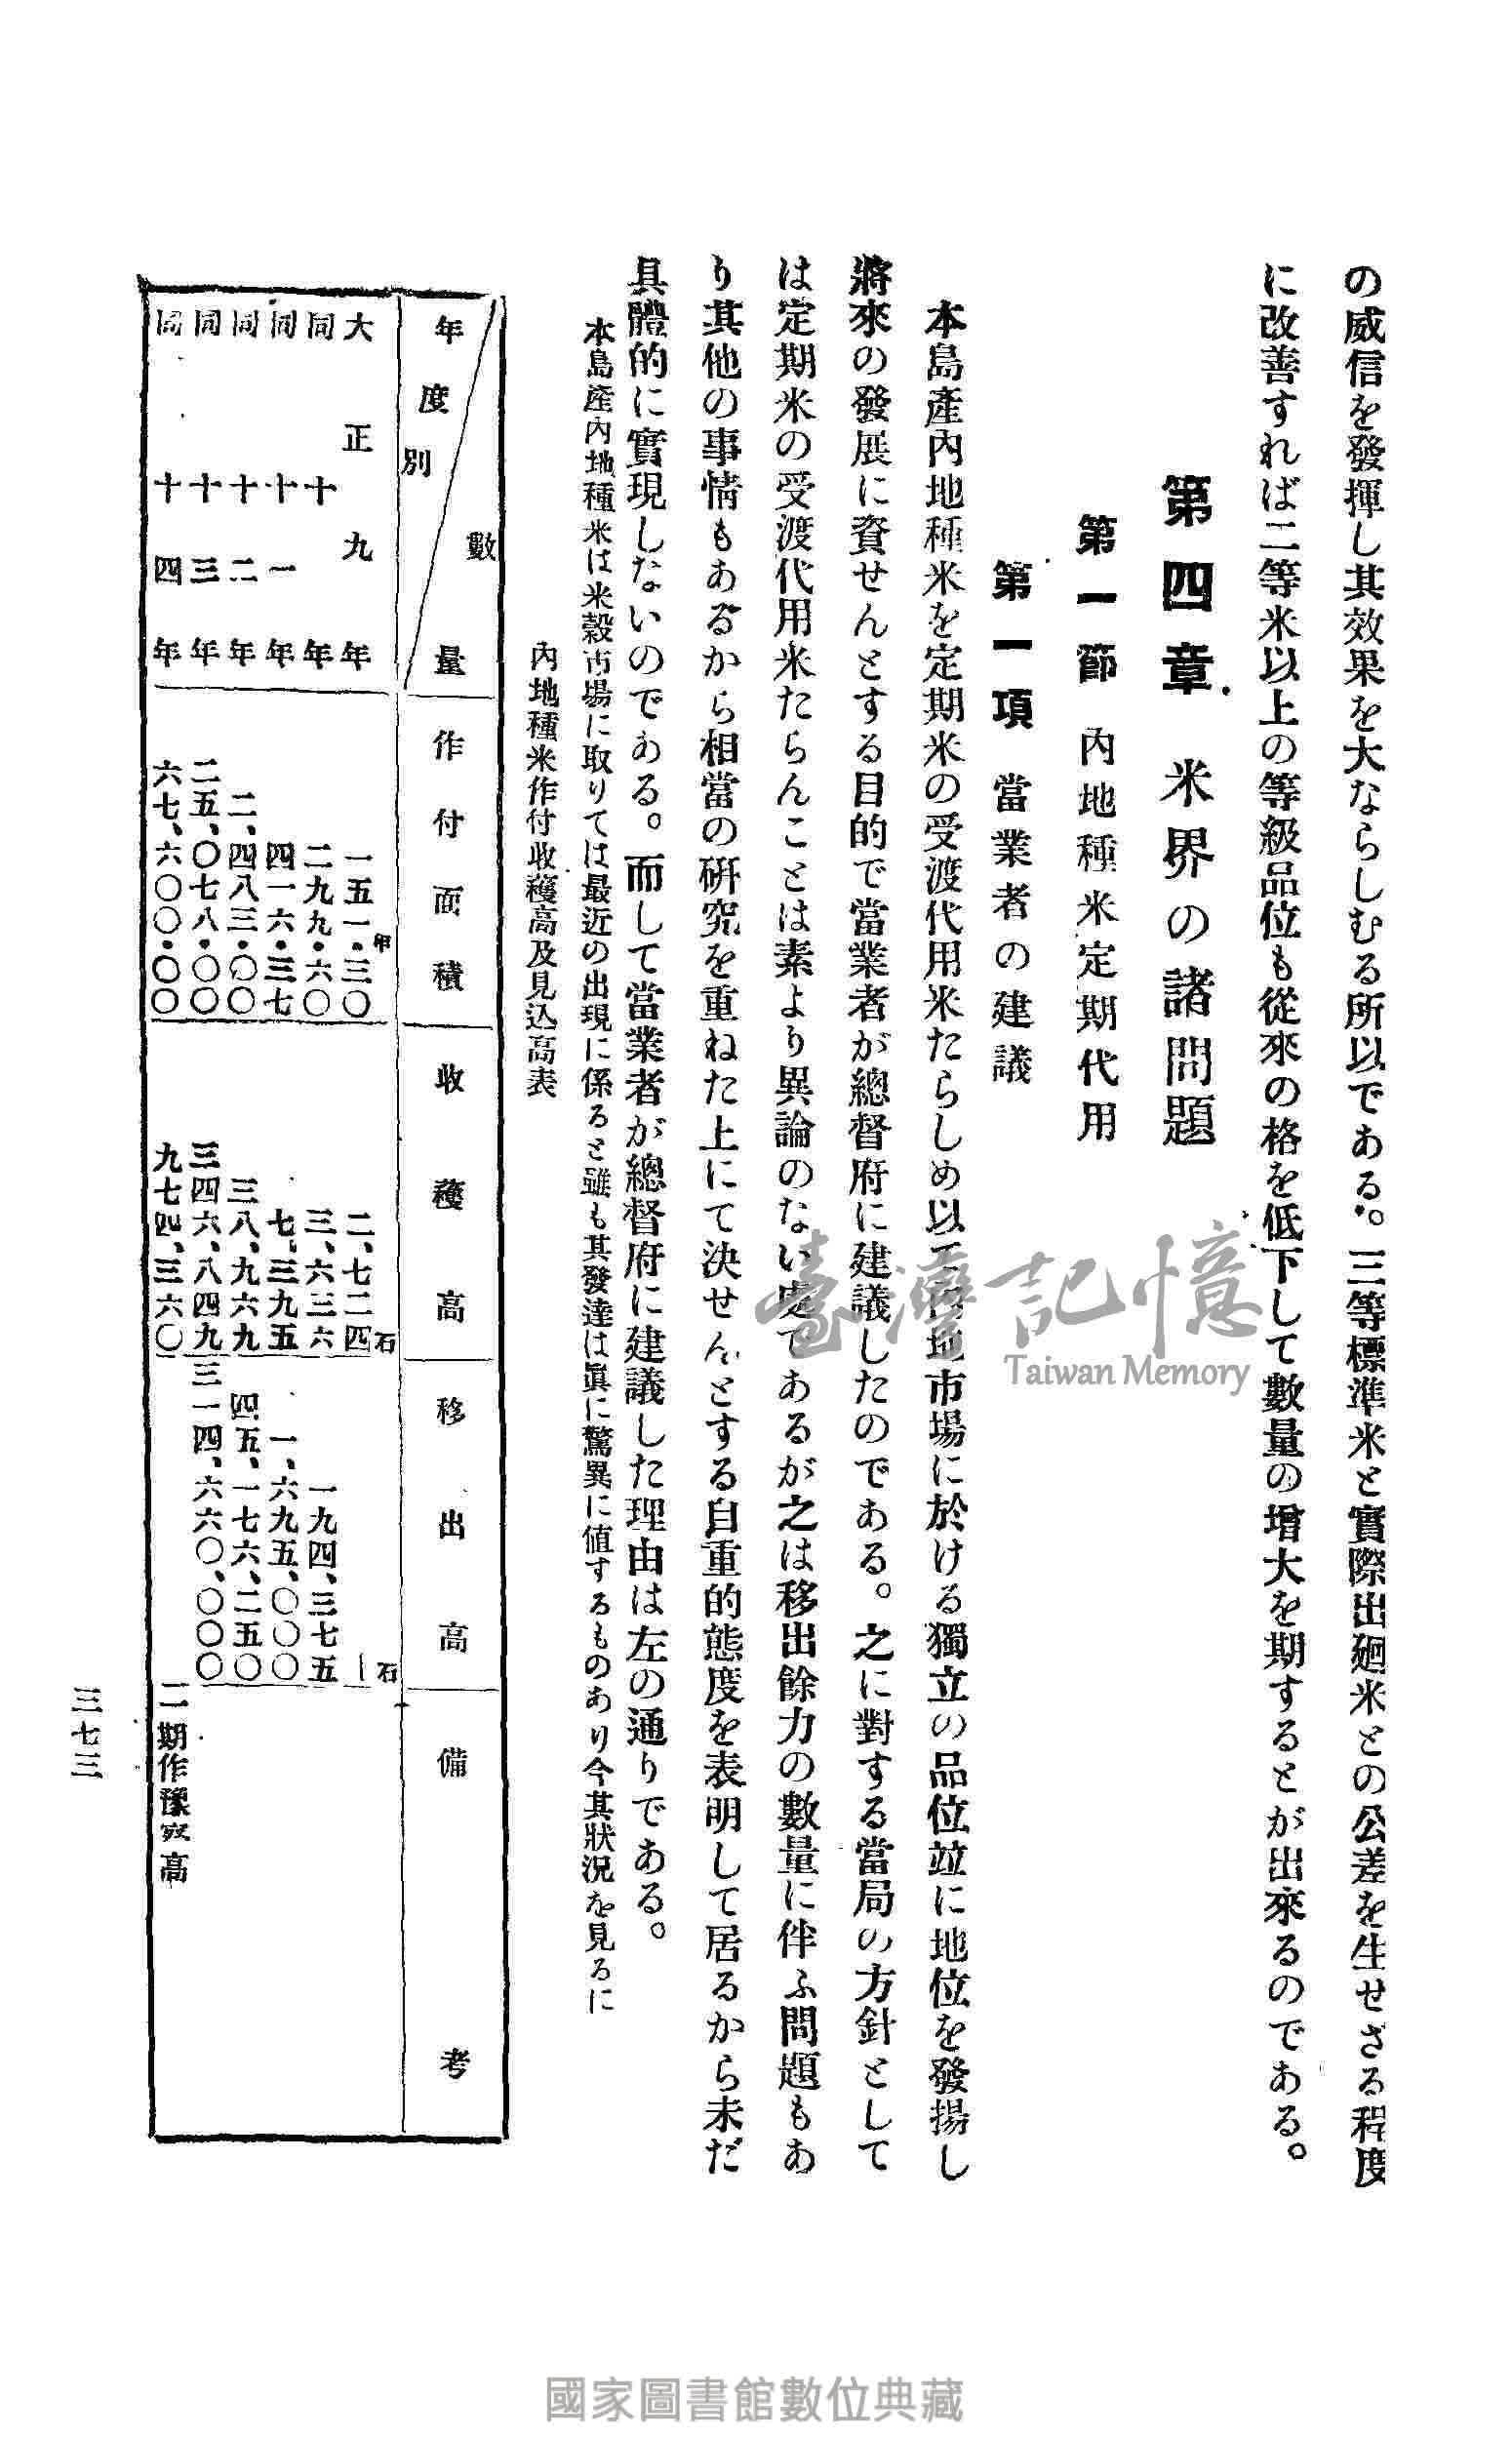 の威信を發揮し其效果を大ならしむる所以である。三等標準米と實際出廻米との公差を生せざる程度
に改善すれば二等米以上の等級品位も從來の格を低下して數量の增大を期することが出來るのである。
第四章 米界の諸問題
第一節 內地種米定期代用
第一項 當業者の建議
本島產內地種米を定期米の受渡代用米たらしめ以て內地市場に於ける獨立の品位竝に地位を發揚し
將來の發展に資せんとする目的で當業者が總督府に建議したのである。之に對する當局の方針として
は定期米の受渡代用米たらんことは素より異論のない處であるが之は移出餘力の數量に伴ふ問題もあ
り其他の事情もあるから相當の硏究を重ねた上にて決せんとする自重的態度を表明して居るから未だ
具體的に實現しないのである。而して當業者が總督府に建議した理由は左の通りである。
本島產內地種米は米穀市場に取りては最近の出現に係ると雖も其發達は眞に驚異に値するものあり今其狀況を見るに
內地種米作付收穫高及見込高表
年度別 數量 作付面積 收穫高 移出高 備考
大正九年 一五一・三〇甲 二、七二四石 ―石
同十年 二九九・六〇 三、六三六 一九四、三七五
同十一年 四一六・三七 七、三九五 一、六九五、〇〇〇
同十二年 二、四八三・〇〇 三八、九六九 四五、一七六、二五〇
同十三年 二五、〇七八・〇〇 三四六、八四九 三一四、六六〇、〇〇〇
同十四年 六七、六〇〇・〇〇 九七四、三六〇 二期作豫察高
三七三
臺灣記憶
Taiwan Memory
國家圖書館數位典藏